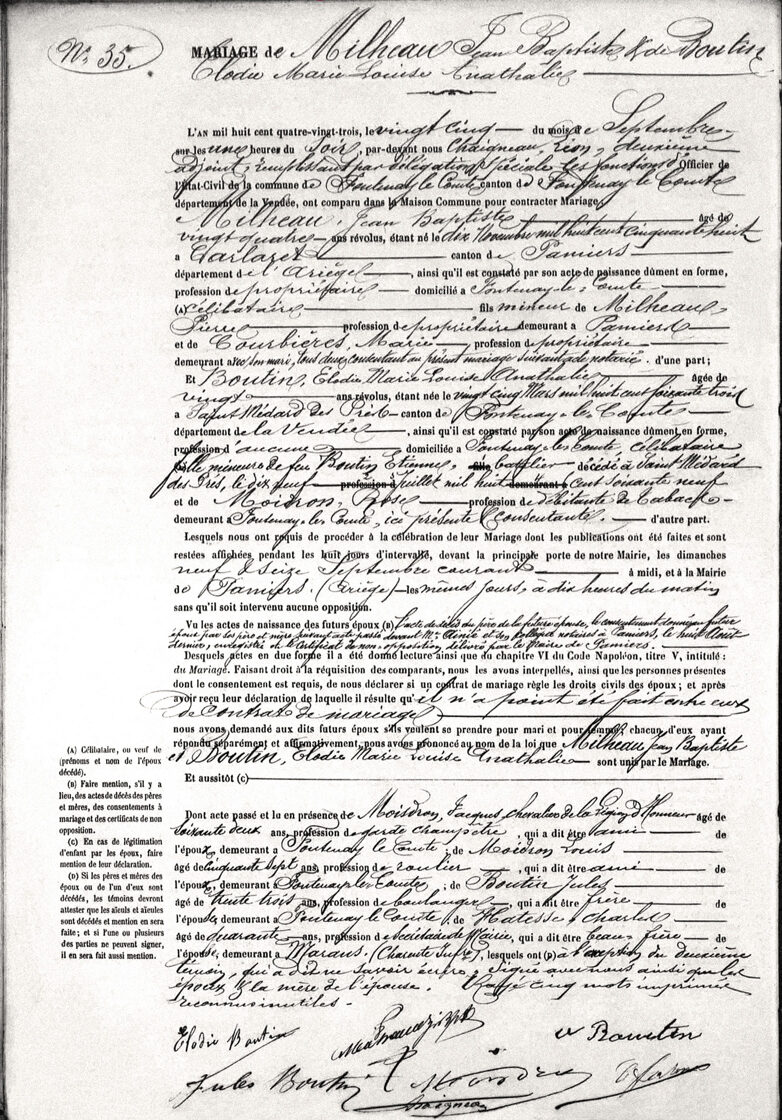 N° 35.
MARIAGE de Milheau Jean Baptiste & de Boutin
Elodie Marie Louise Anathalie
L'AN mil huit cent quatre-vingt-trois, le vingt cinq du mois de Septembre
sur les une heures du Soir, par-devant nous Chaigneau, Léon, deuxième
adjoint, remplissant par délégation spéciale les fonctions d' Officier de
l'État-Civil de la commune de Fontenay le Comte canton de Fontenay le Comte
département de la Vendée, ont comparu dans la Maison Commune pour contracter Mariage,
Milheau, Jean Baptiste âgé de
vingt quatre ans révolus, étant né le dix Novembre mil huit cent cinquante huit
a Carlaret canton de Pamiers
département de l'Ariége, ainsi qu'il est constaté par son acte de naissance dûment en forme,
profession de propriétaire domicilié a Fontenay-le-Comte
(A) célibataire fils mineur de Milheau
Pierre profession de propriétaire demeurant a Pamiers
et de Courbières, Marie, profession de propriétaire
demeurant avec son mari, tous deux consentant au présent mariage suivant acte notarié. d'une part;
Et Boutin, Elodie Marie Louise Anathalie âgée de
vingt ans révolus, étant née le vingt cinq Mars mil huit cent soixante trois
a Saint Médard des Prés canton de Fontenay le Comte
département de la Vendée, ainsi qu'il est constaté par son acte de naissance dûment en forme,
profession d'aucune domiciliée a Fontenay le Comte, célibataire
fille mineure de feu Boutin Etienne, décédé à Saint Médard
des Prés, le dix neuf profession d juillet mil huit demeurant a cent soixante neuf
et de Moidron, Rose profession de débitante de tabac
demeurant a Fontenay le Comte, ici présente & consentante. d'autre part.
Lesquels nous ont requis de procéder à la célébration de leur Mariage dont les publications ont été faites et sont
restées affichées, pendant les huit jours d'intervalle, devant la principale porte de notre Mairie, les dimanches
neuf & seize Septembre courant à midi, et à la Mairie
de Pamiers. (Ariége) les mêmes jours, à dix heures du matin
sans qu'il soit intervenu aucune opposition.
Vu les actes de naissance des futurs époux (B) l'acte de décès du père de la future épouse, le consentement donné au futur
époux par les père et mère suivant acte passé devant Me et son collègue notaires à Pamiers, le huit Août
dernier, enregistré & le certificat de non-opposition délivré par le Maire de Pamiers.
Desquels actes en due forme il a été donné lecture ainsi que du chapitre VI du Code Napoléon, titre V, intitulé :
du Mariage. Faisant droit à la réquisition des comparants, nous les avons interpellés, ainsi que les personnes présentes
dont le consentement est requis, de nous déclarer si un contrat de mariage règle les droits civils des époux; et après
avoir reçu leur déclaration de laquelle il résulte qu'il n'a point été fait entre eux
de contrat de mariage
nous avons demandé aux dits futurs époux s'ils veulent se prendre pour mari et pour femme; chacun d'eux ayant
répondu séparément et affirmativement, nous avons prononcé au nom de la loi que Milheau, Jean Baptiste
et Boutin, Elodie Marie Louise Anathalie sont unis par le Mariage.
Et aussitôt (C)
Dont acte passé et lu en présence de Moisdron, Jacques, chevalier de la Légion d'Honneur âgé de
soixante deux ans, profession de garde champêtre, qui a dit être ami de
l'époux, demeurant a Fontenay le Comte; de Moidron Louis
âgé de cinquante sept ans, profession de roulier, qui a dit être ami de
l'époux, demeurant a Fontenay-le-Comte; de Boutin Jules
âgé de trente trois ans, profession de boulanger, qui a dit être frère de
l'épouse, demeurant a Fontenay le Comte, de Hatesse Charles
âgé de quarante ans, profession de Secrétaire de Mairie, qui a dit être beau-frère de
l'épouse, demeurant a Marans. (Charente Infre), lesquels ont (D) à l'exception du deuxième
témoin, qui a dit ne savoir écrire, signé avec nous ainsi que les
époux & la mère de l'épouse. Rayé cinq mots imprimés
reconnus inutiles.
(A) Célibataire, ou veuf de
(prénoms et nom de l'époux
décédé).
(B) Faire mention, s'il y a
lieu, des actes de décès des pères
et mères, des consentements à
mariage et des certificats de non
opposition.
(C) En cas de légitimation
d'enfant par les époux, faire
mention de leur déclaration.
(D) Si les pères et mères des
époux ou de l'un d'eux sont
décédés, les témoins devront
attester que les aïeuls et aïeules
sont décédés et mention en sera
faite; et si l'une ou plusieurs
des parties ne peuvent signer,
il en sera fait aussi mention.
Elodie Boutin
Boutin
Jules Boutin Moisdron
Chaigneau